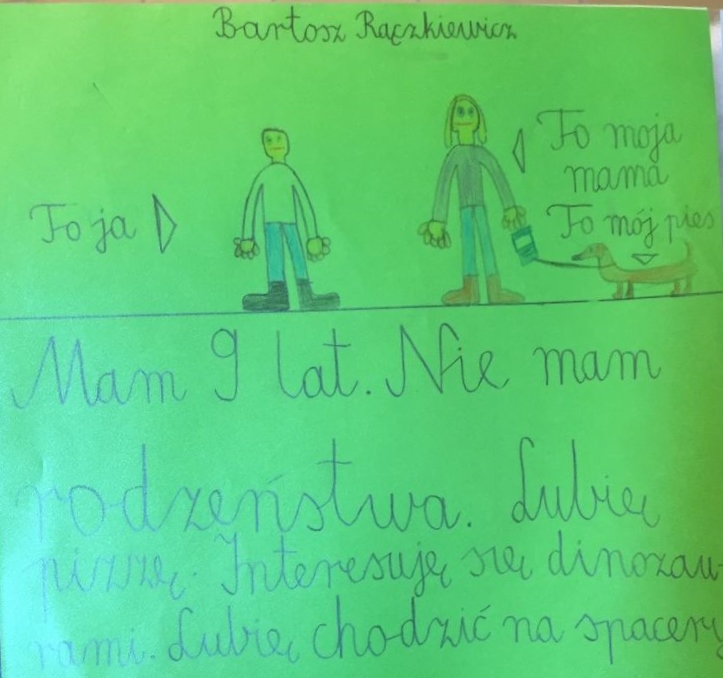 Bartosz Rączkiewicz
To moja
mama
To ja
To mój pies
Mam 9 lat. Nie mam
rodzeństwa. Lubię
pizzę. Interesuję się dinozau-
rami. Lubię chodzić na spacery